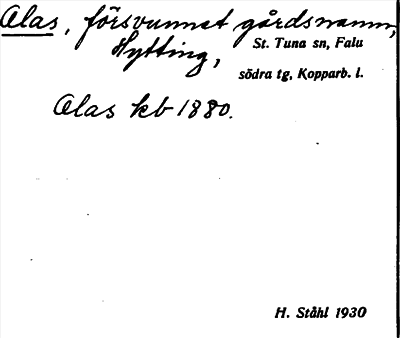 Olas, försvunnet gårdsnamn,
Hytting,
St. Tuna sn, Falu
södra tg, Kopparb. l.
Olas kb 1880.
H. Ståhl 1930